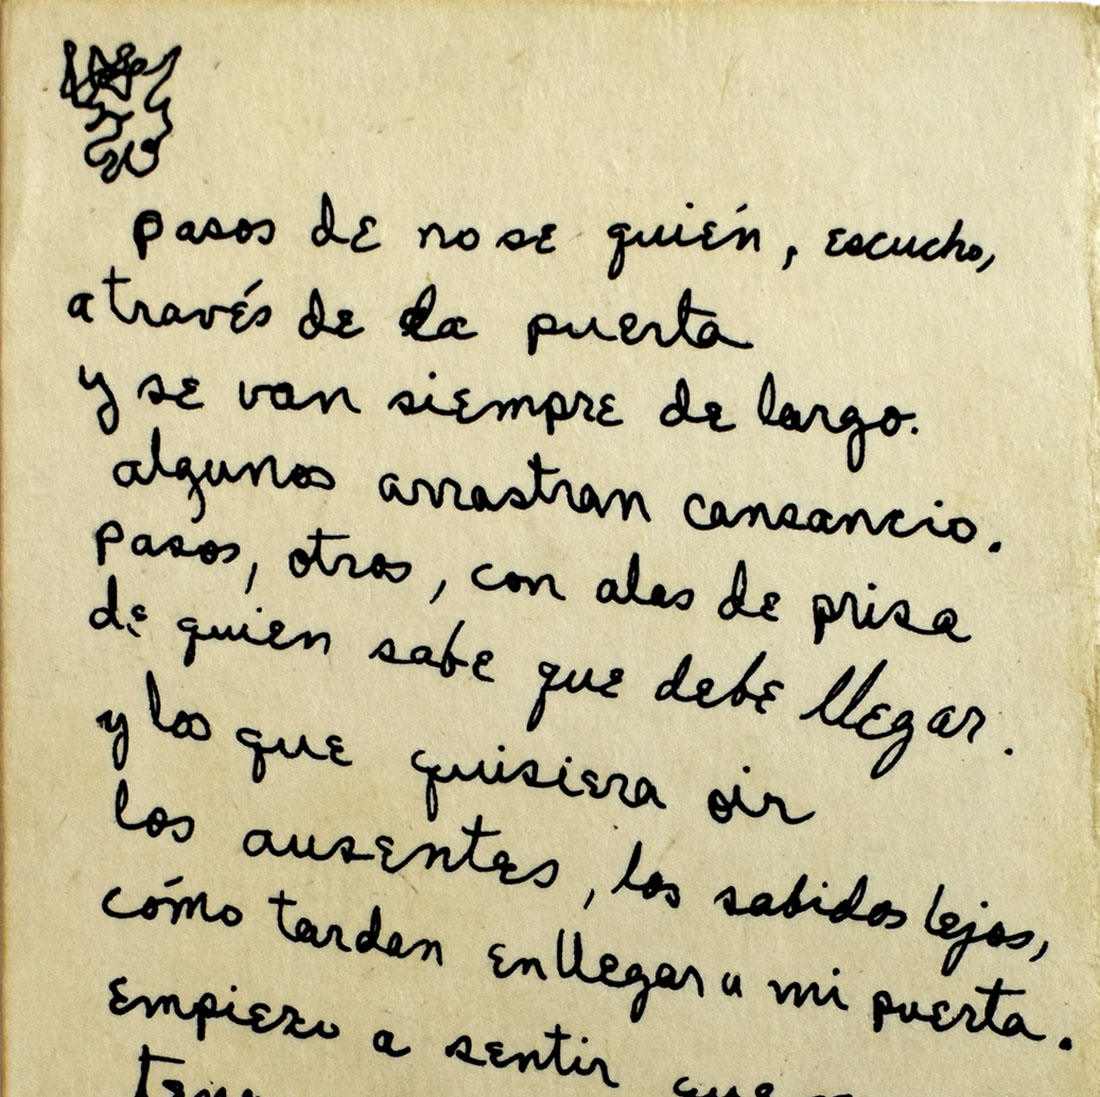 pasos de no se quién, escucho,
a través de la puerta
y se van siempre de largo.
algunos arrastran cansancio.
pasos, otros, con alas de prisa
de quien sabe que debe llegar.
y los que quisiera oir
los ausentes, los sabidos lejos,
cómo tardan en llegar a mi puerta.
empiezo a sentir que